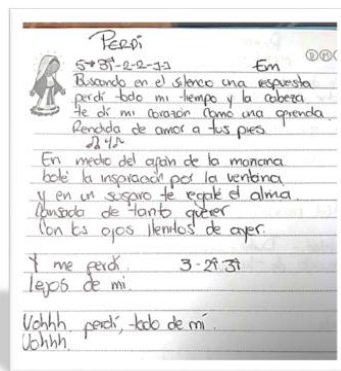 PERDÍ
5→3î-2-2-1-1 Em
Buscando en el silencio una respuesta
perdí todo mi tiempo y la cabeza
te dí mi corazón como una ofrenda
Rendida de amor a tus pies
En medio del afán de la mañana
boté la inspiración por la ventana
y en un suspiro te regalé el alma.
Cansada de tanto querer
Con los ojos llenitos de ayer.
Y me perdí. 3-2î 3î
lejos de mi.
Uohhh perdí, todo de mí.
Uohhh